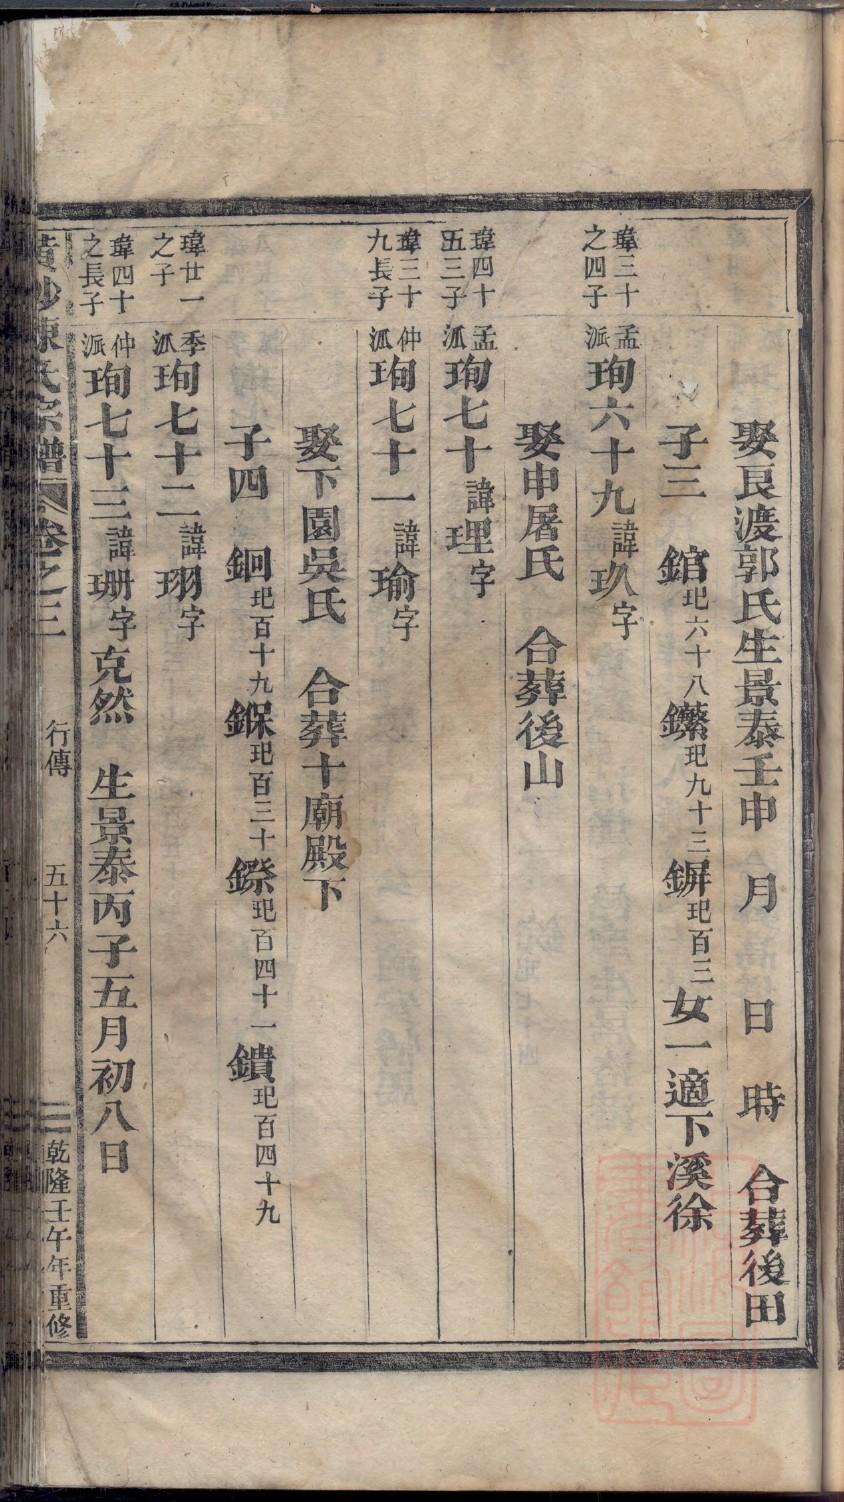 娶良渡郭氏生景泰壬申 月 日 時 合葬後田
子三 錧玘六十八 玘九十三 鋷玘百三 女一適下溪徐
瑋三十之四子 孟派 珣六十九 諱玖字
娶申屠氏 合葬後山
瑋四十五三子 孟派 珣七十 諱理字
瑋三十九長子 仲派 珣七十一 諱瑜字
娶下園吳氏 合葬十廟殿下
子四 鉰玘百十九 玘百三十 玘百四十一 鐀玘百四十九
瑋廿一之子 季派 珣七十二 諱珝字
瑋四十之長子 仲派 珣七十三 諱珊字克然 生景泰丙子五月初八日
黃沙陳氏宗譜 卷之三 行傳 五十六 乾隆壬午年重修